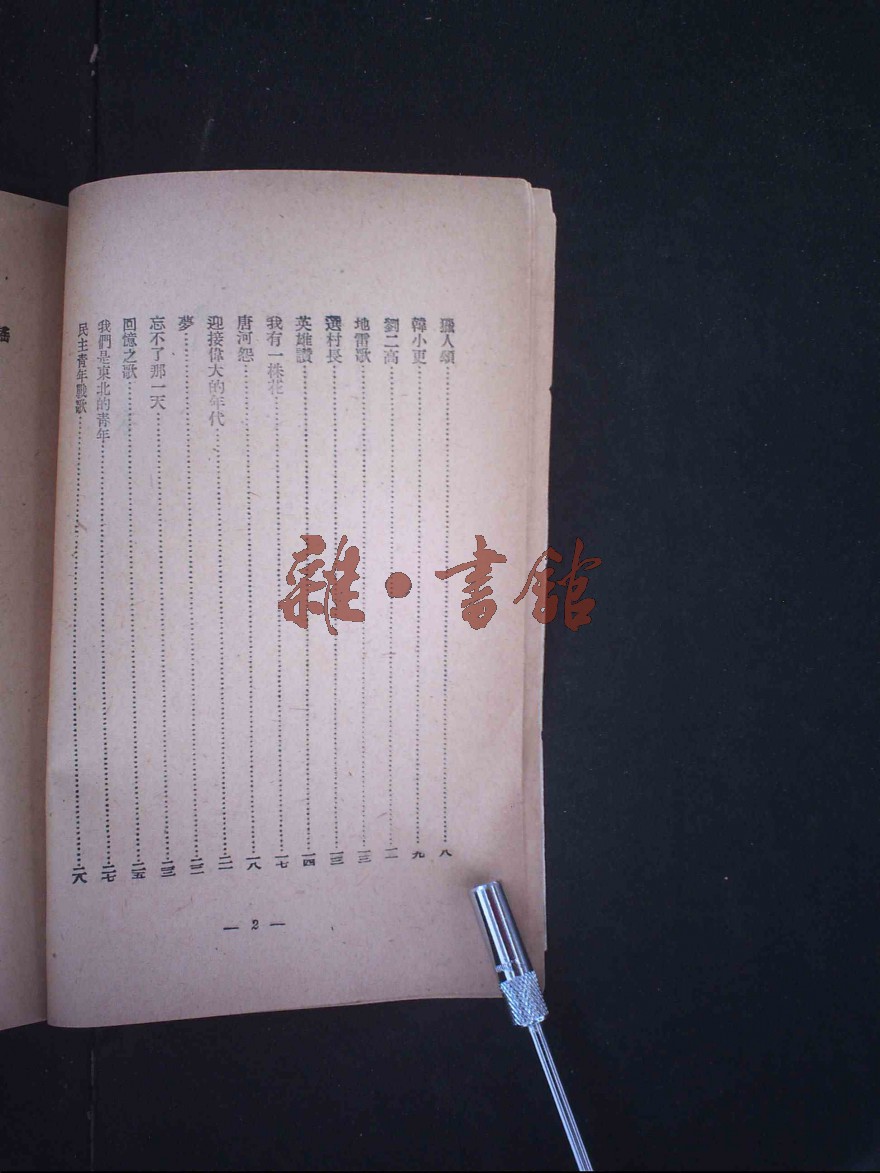 獵人頌………八
韓小更………九
劉二高………一一
地雷歌………一二
選村長………一三
英雄讚………一四
我有一株花………一七
唐河怨………一八
迎接偉大的年代………二一
夢………二二
忘不了那一天………二三
回憶之歌………二五
我們是東北的青年………二七
民主青年戰歌………二八
— 2 —
謠
雜·書館